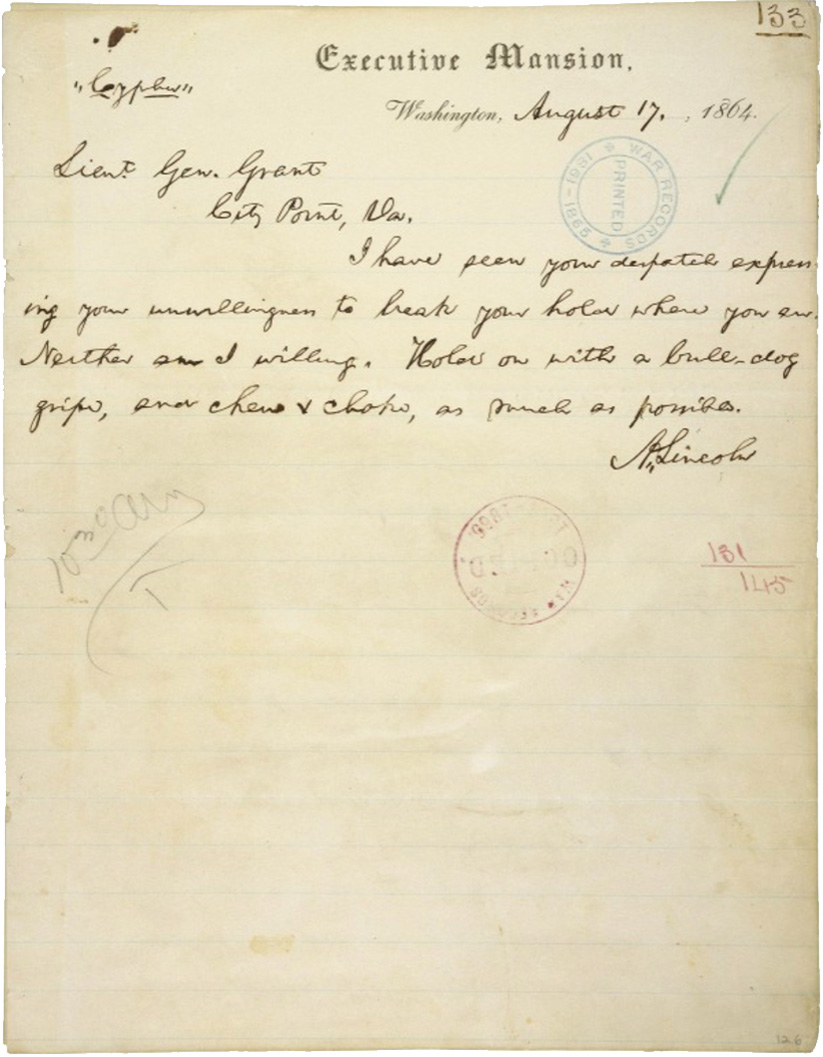 133
Executive Mansion,
"Cypher"
Washington, August 17. , 1864.
Lieut. Gen. Grant
City Point, Va.
WAR RECORDS
1861-1865
PRINTED
I have seen your despatch express
ing your unwillingness to break your hold where you are.
Neither am I willing. Hold on with a bull-dog
gripe, and chew & choke, as much as possible.
A. Lincoln
131
145
WAR RECORDS
126